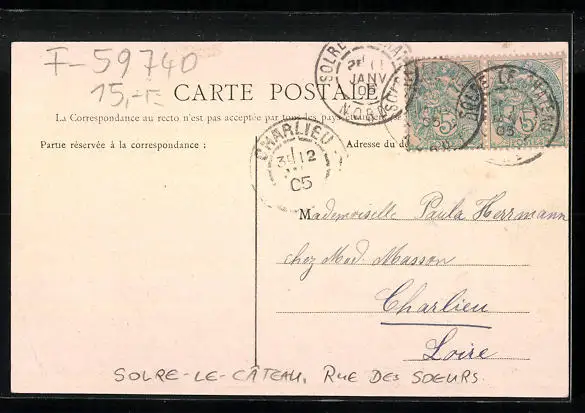 F-59740
15,-
CARTE POSTALE
La Correspondance au recto n'est pas acceptée par tous les pays
Partue réservée à la correspondance :
Adresse du
SOLRE-LE-CHATEAU
JANV
05
NORD
5
5
CHARLIEU
3E 12
05
Mademoiselle Paula Herrmann
chez Mad. Masson
Charlieu
Loire
SOLRE-LE-CÂTEAU, RUE DES SOEURS.